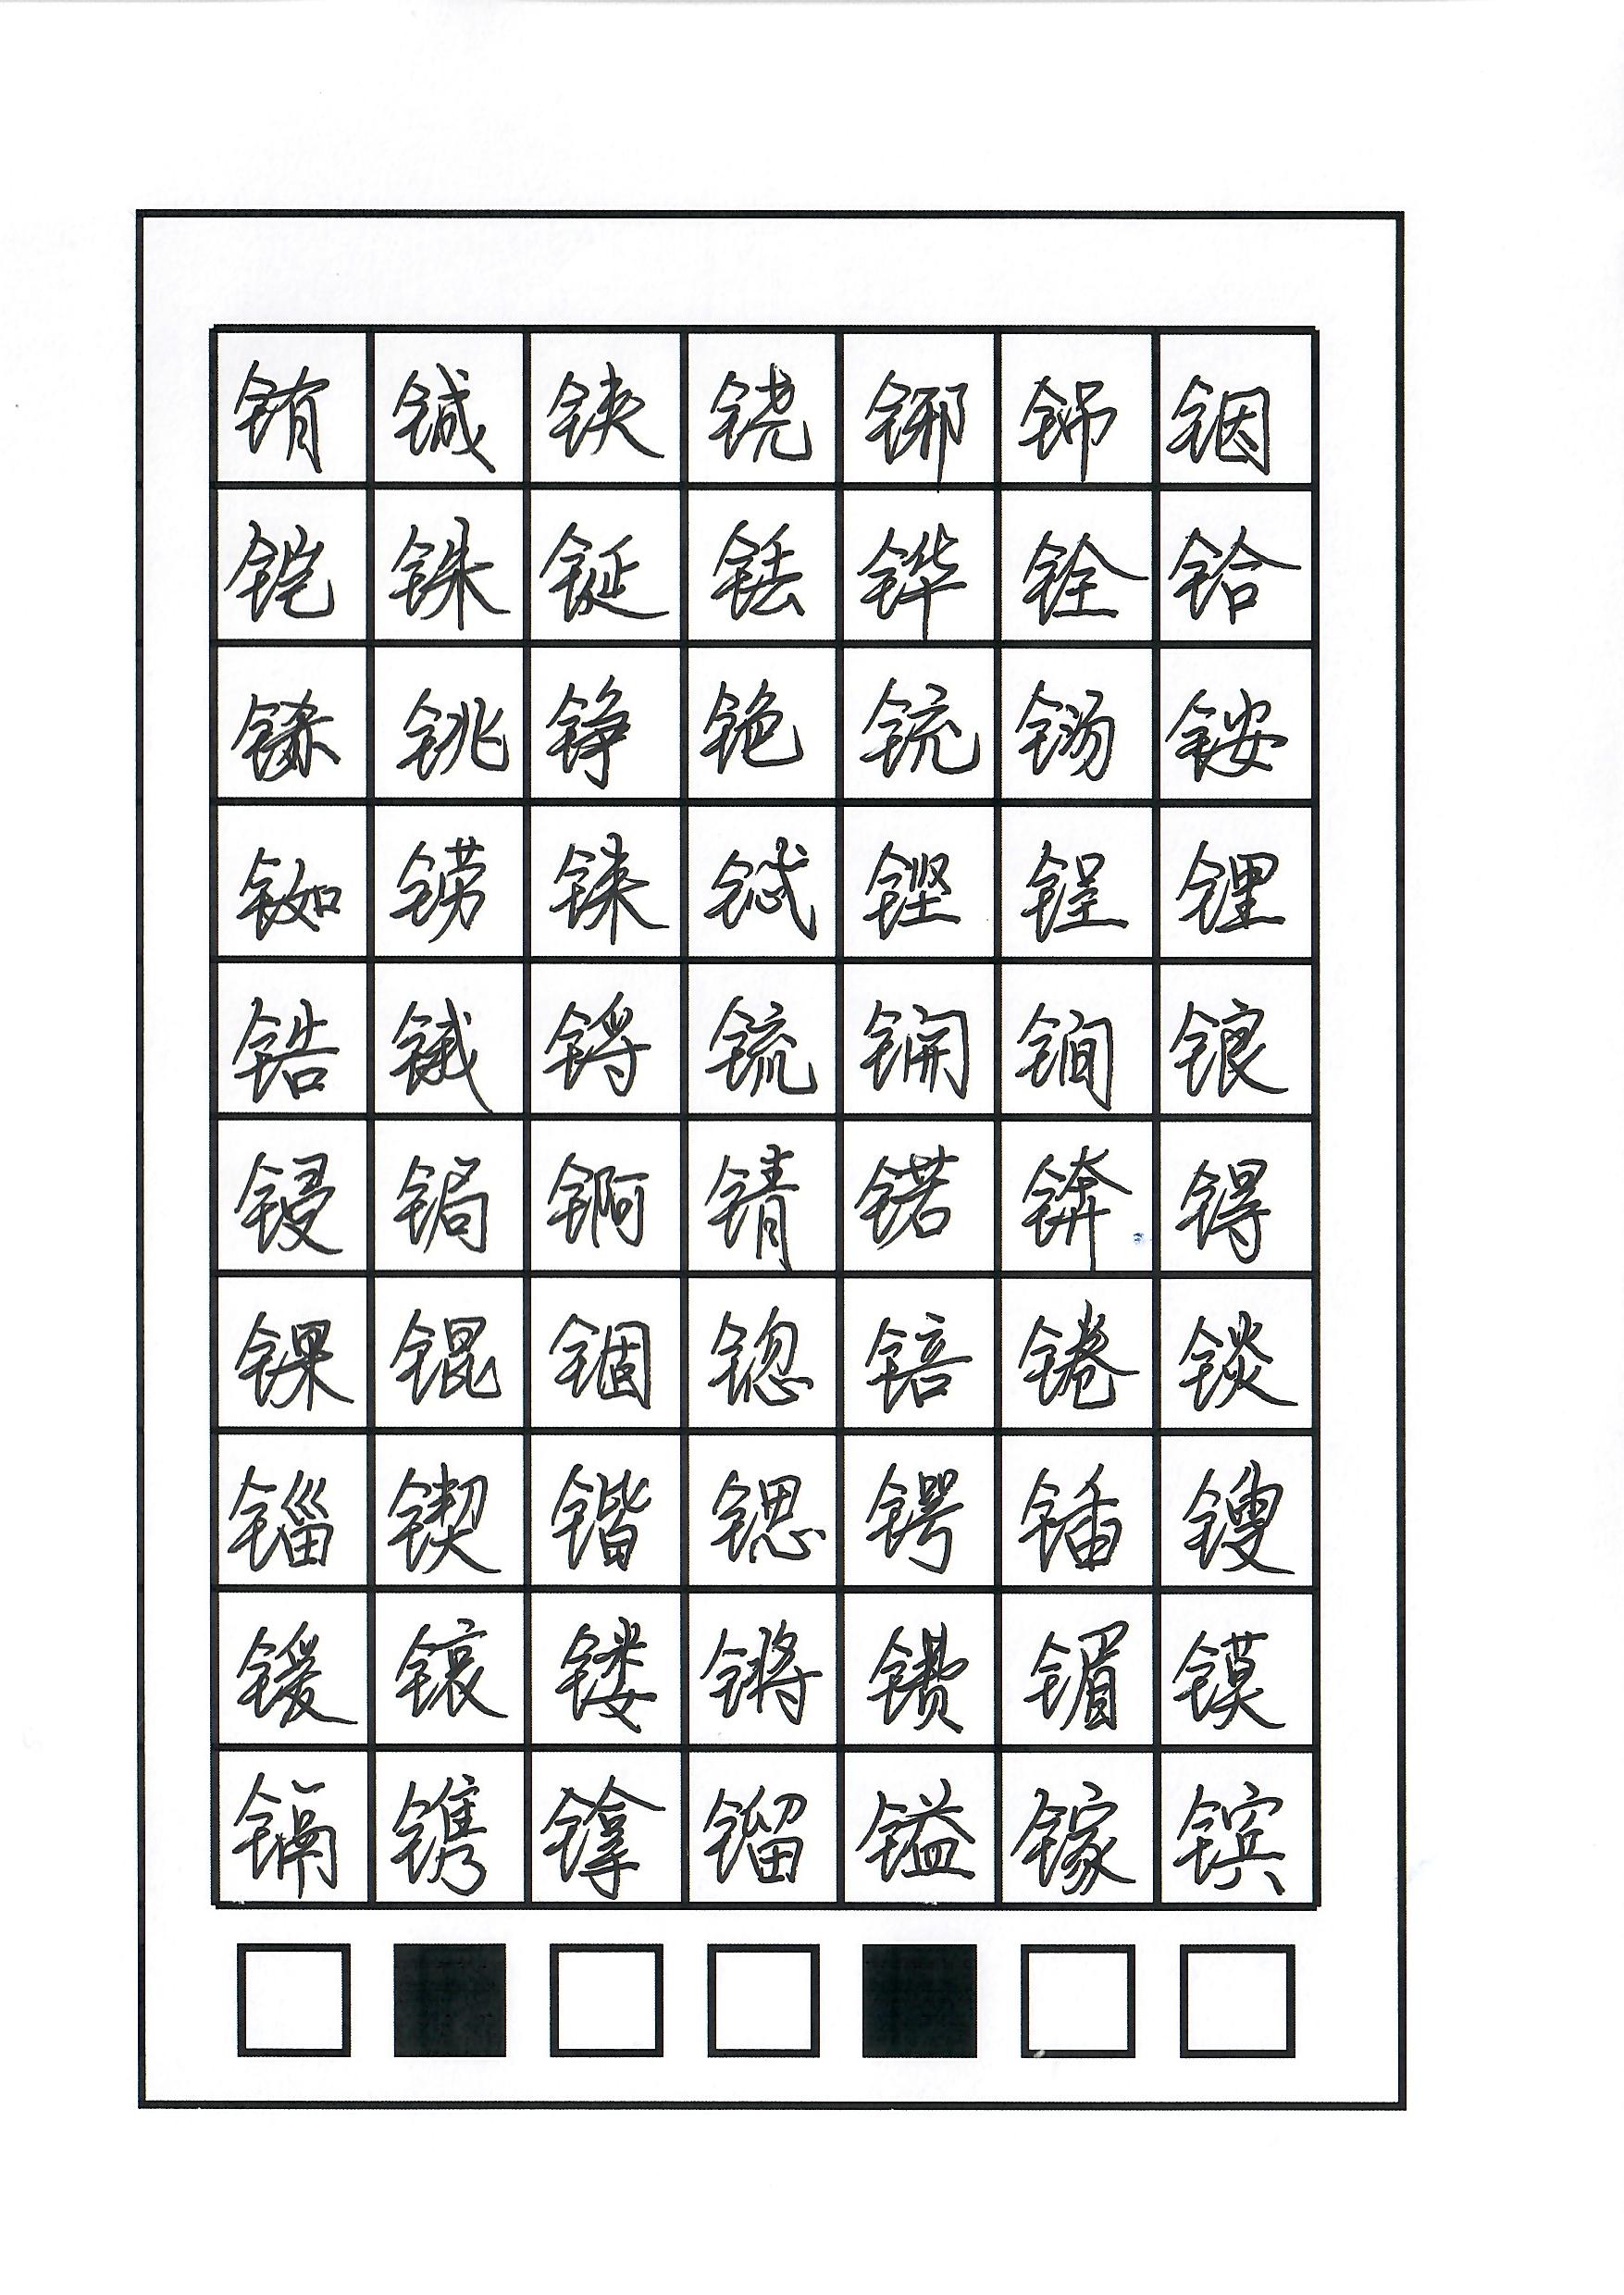 铕铖铗铙铘铞铟
铠铢铤铥铧铨铪
铩铫铮铯铳铴铵
铷铹铼铽铿锃锂
锆锇锊锍锎锏锒
锓锔锕锖锘锛锝
锞锟锢锪锫锩锬
锱锲锴锶锷锸锼
锾锿镂锵镄镅镆
镉镌镎镏镒镓镔